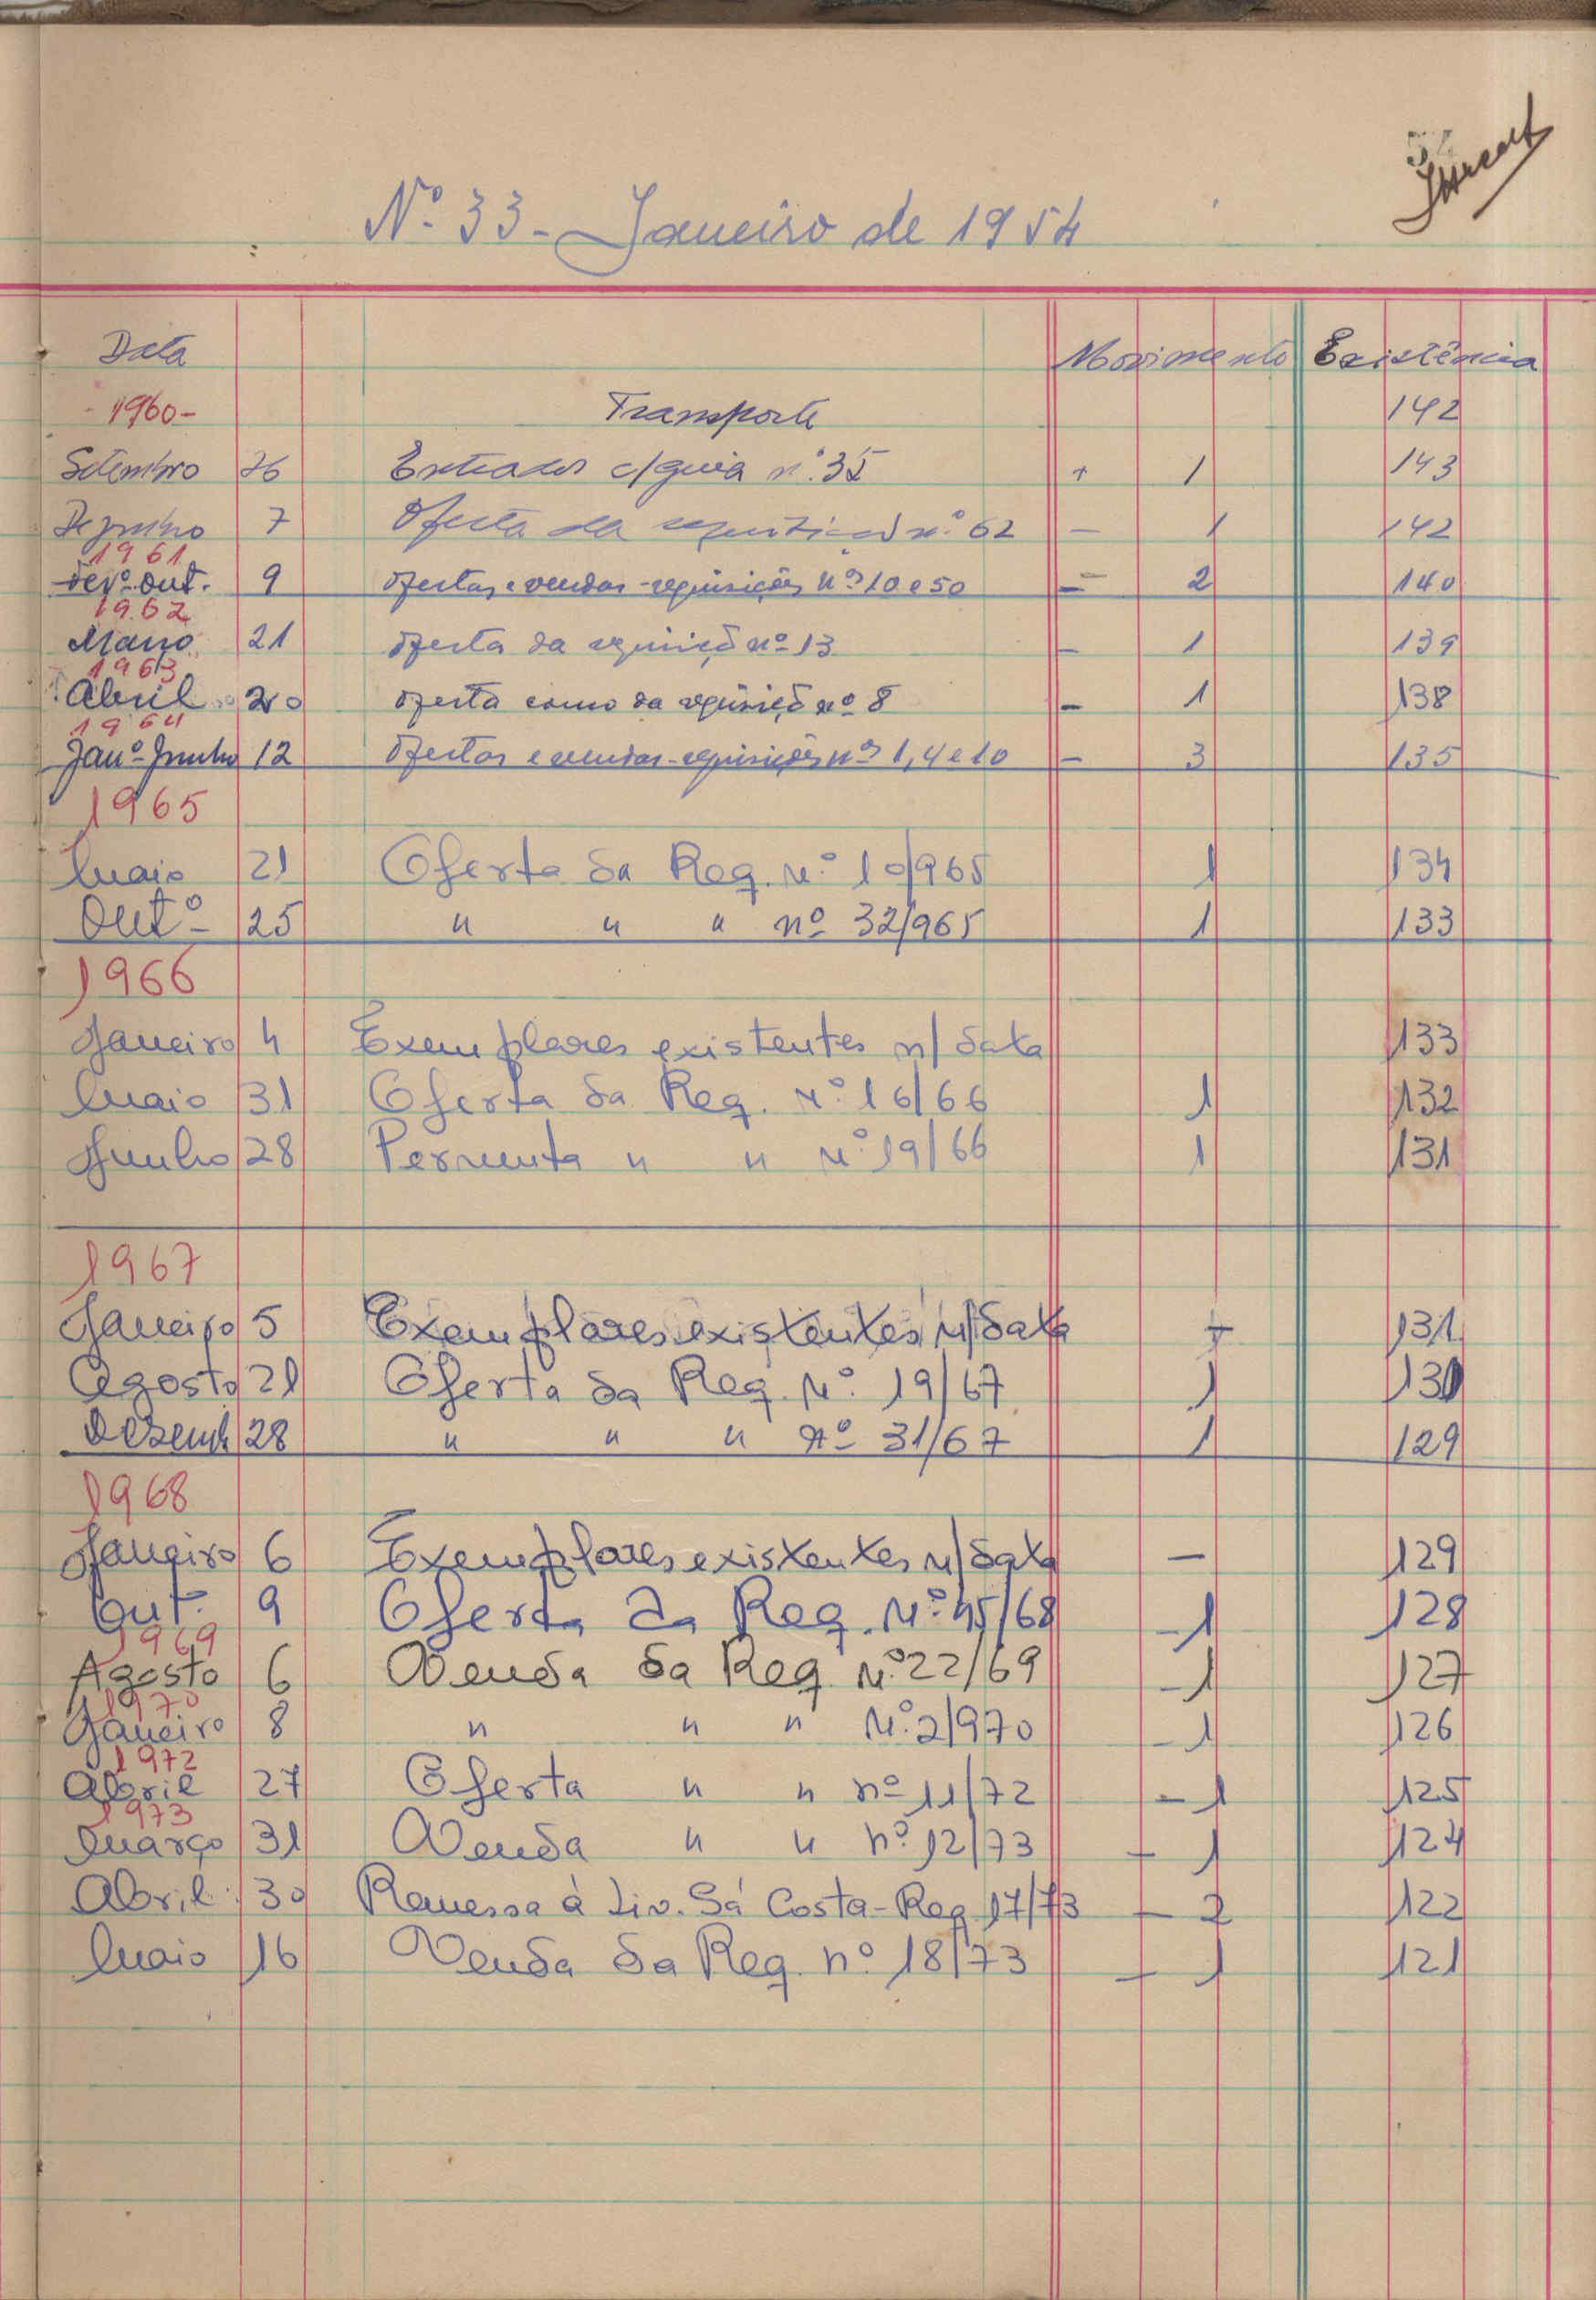 Nº 33 - Janeiro de 1954
Data Movimento Existência
-1960- Transporte 142
Setembro 26 Entrados c/guia nº 35 + 1 143
Dezembro 7 Oferta da requisição nº 62 - 1 142
1961
Fevº-Out. 9 Ofertas e vendas-requisições nºs 10 e 50 - 2 140
1962
Março 21 Oferta da requisição nº 13 - 1 139
1963
Abril 20 Oferta como da requisição nº 8 - 1 138
1964
Janº-Junho 12 Ofertas e vendas-requisições nºs 1,4 e 10 - 3 135
1965
Maio 21 Oferta da Req. Nº 10/965 1 134
Outº 25 " " " nº 32/965 1 133
1966
Janeiro 4 Exemplares existentes n/data 133
Maio 31 Oferta da Req. Nº 16/66 1 132
Junho 28 Permuta " " Nº 19/66 1 131
1967
Janeiro 5 Exemplares existentes n/data 131
Agosto 21 Oferta da Req. Nº 19/67 1 130
Dezemb 28 " " " nº 31/67 1 129
1968
Janeiro 6 Exemplares existentes n/data - 129
Out. 9 Oferta da Req. Nº 45/68 -1 128
1969
Agosto 6 Venda da Req. Nº 22/69 -1 127
1970
Janeiro 8 " " " Nº 2/970 -1 126
1972
Abril 27 Oferta " " nº 11/72 -1 125
1973
Março 31 Venda " " nº 12/73 - 1 124
Abril 30 Remessa à Liv. Sá Costa-Req. 17/73 - 2 122
Maio 16 Venda da Req. nº 18/73 - 1 121